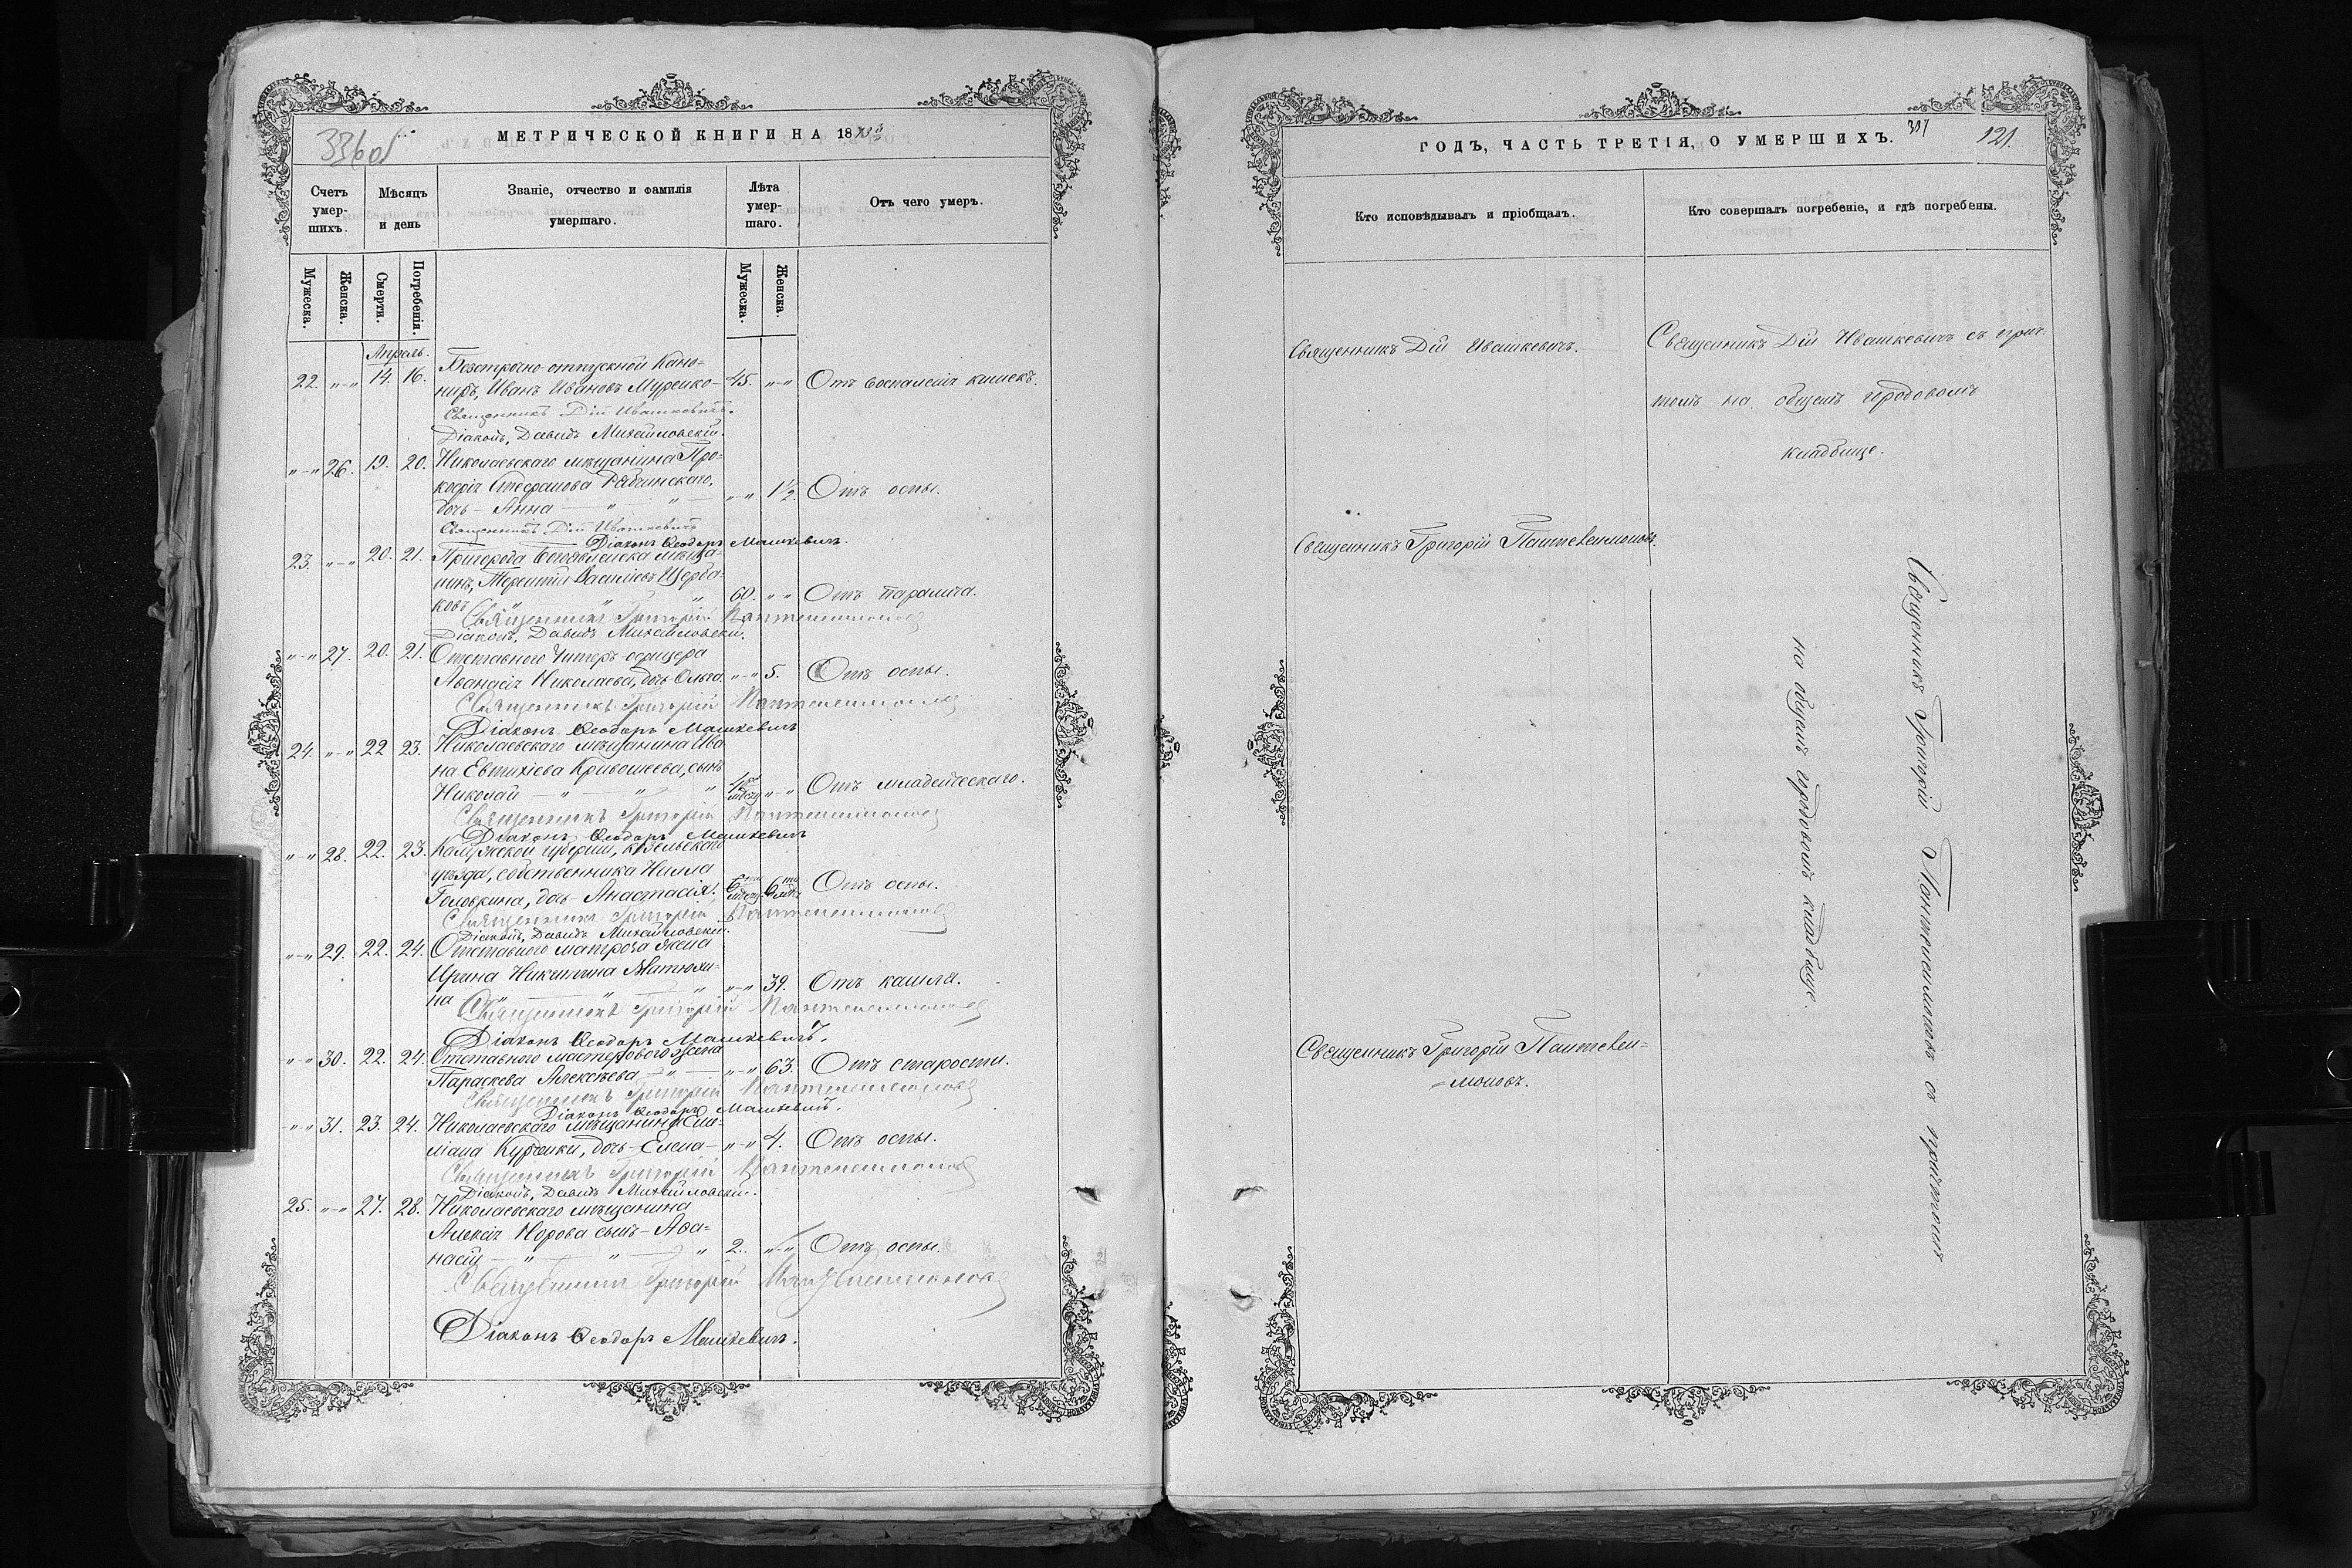 336 об
МЕТРИЧЕСКОЙ КНИГИ НА 1873
Счетъ умер-шихъ.
Мѣсяцъ и день
Званіе, отчество и фамилія умершаго.
Лѣта умер-шаго.
Отъ чего умеръ.
Мужеска.
Женска.
Смерти.
Погребенія.
Мужеска.
Женска.
Апрѣль.
Безсрочно-отпускной Кано=
22. „-„ 14. 16. ниръ, Иванъ Ивановъ Муренко- 45. „-„ Отъ воспаленія кишекъ.
Священникъ Дій Ивашкевичъ.
Діаконъ, Давидъ Михайловскій.
„-„ 26. 19. 20. Николаевскаго мѣщанина Про=
кофія Стефанова Рабчинскаго,
дочь - Анна — „ — „ — „-„ 1½. Отъ оспы.
Священникъ Дій Ивашкевичъ
Діаконъ Ѳеодоръ Машкевичъ.
23. „-„ 20. 21. Пригорода Богоявленска мѣща=
нинъ, Терентій Василіевъ Щерба=
ковъ „ „ „ 60. „-„ Отъ паралича.
Священникъ Григорій Пантелеимоновъ
Діаконъ, Давидъ Михайловскій.
„-„ 27. 20. 21. Отставного Унтеръ-офицера
Аѳанасія Николаева, дочь-Ольга. „-„ 5. Отъ оспы.
Священникъ Григорій Пантелеимоновъ
Діаконъ Ѳеодоръ Машкевичъ
24. „-„ 22. 23. Николаевскаго мѣщанина Ива
на Евтихіева Кривошеева, сынъ
Николай — „ — „ — „ мѣсяц „-„ Отъ младенческаго.
Священникъ Григорій Пантелеимоновъ
Діаконъ Ѳеодоръ Машкевичъ
„-„ 28. 22. 23. Калужской губерніи, Козельскаго
уѣзда, собственника Нилла
Головкина, дочь Анастасія. 6 6 Отъ оспы.
Священникъ Григорій Пантелеимоновъ
Діаконъ, Давидъ Михайловскій.
„-„ 29. 22. 24. Отставного матроза жена
Ирина Никитина Матюхи=
на — „ — „ — „ „-„ 39. Отъ кашля.
Священникъ Григорій Пантелеимоновъ
Діаконъ Ѳеодоръ Машкевичъ.
„-„ 30. 22. 24. Отставного мастероваго жена
Параскева Алексѣева — „ — „-„ 63. Отъ старости.
Священникъ Григорій Пантелеимоновъ
Діаконъ Ѳеодоръ Машкевичъ.
„-„ 31. 23. 24. Николаевскаго мѣщанина Еми=
дочь-Елена- „-„ 4. Отъ оспы.
Священникъ Григорій Пантелеимоновъ
Діаконъ, Давидъ Михайловскій.
25. „-„ 27. 28. Николаевскаго мѣщанина
Алексія Норова сынъ-Аѳа=
насій — „ — „ — „ 2. „-„ Отъ оспы.
Священникъ Григорій Пантелеимоновъ
Діаконъ Ѳеодоръ Машкевичъ.
ГОДЪ, ЧАСТЬ ТРЕТІЯ, О УМЕРШИХЪ.
121.
Кто исповѣдывалъ и пріобщалъ.
Кто совершалъ погребеніе, и гдѣ погребены.
Священникъ Дій Ивашкевичъ.
Священникъ Дій Ивашкевичъ съ прич-
томъ на общемъ городовомъ
кладбище.
Священникъ Григорій Пантелеимоновъ.
Священникъ Григорій Пантелеимоновъ съ причтомъ
на общемъ городовомъ кладбище.
Священникъ Григорій Пантелеи=
=моновъ.